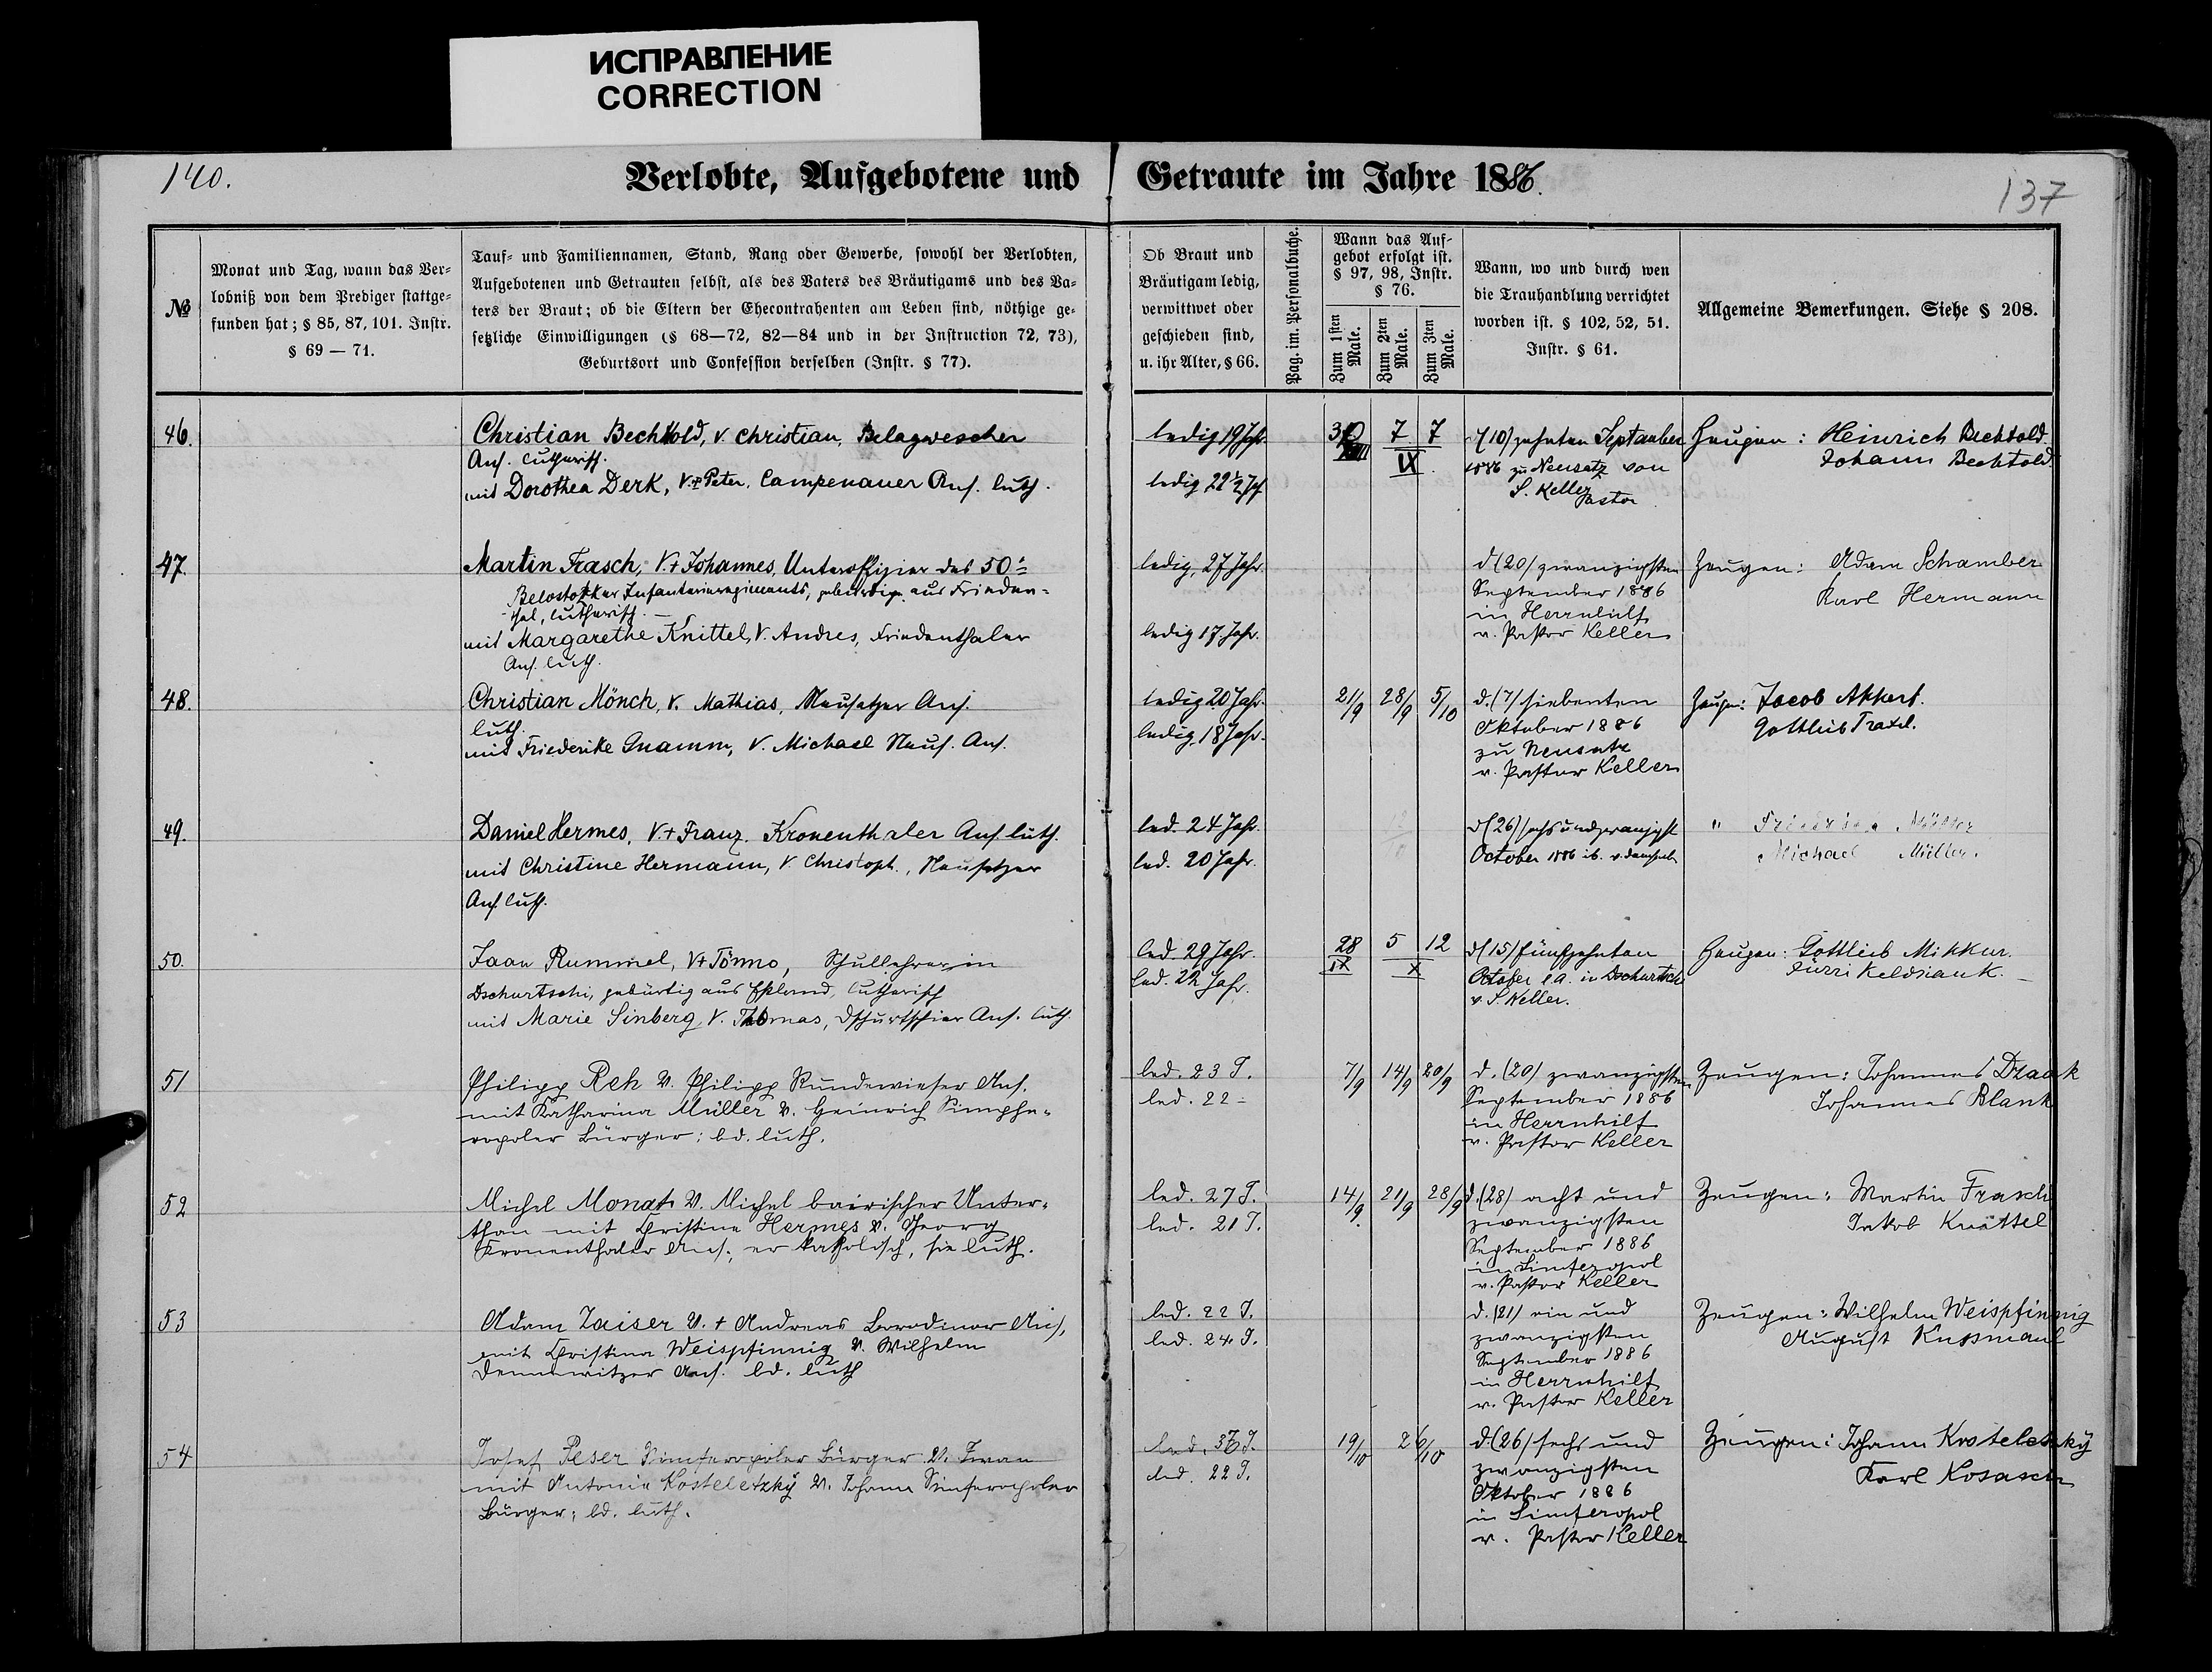 ИСПРАВЛЕНИЕ
CORRECTION
140.
Verlobte, Aufgebotene und Getraute im Jahre 1886.
137
№
Monat und Tag, wann das Ver-
lobniß von dem Prediger stattge-
funden hat; § 85, 87, 101. Instr.
§ 69 — 71.
Tauf- und Familiennamen, Stand, Rang oder Gewerbe, sowohl der Verlobten,
Aufgebotenen und Getrauten selbst, als des Vaters des Bräutigams und des Va-
ters der Braut; ob die Eltern der Ehecontrahenten am Leben sind, nöthige ge-
setzliche Einwilligungen (§ 68—72, 82—84 und in der Instruction 72, 73),
Geburtsort und Confession derselben (Instr. § 77).
Ob Braut und
Bräutigam ledig,
verwittwet oder
geschieden sind,
u. ihr Alter, § 66.
Pag. im. Personalbuche.
Wann das Auf-
gebot erfolgt ist.
§ 97, 98, Instr.
§ 76.
Zum 1sten
Male.
Zum 2ten
Male.
Zum 3ten
Male.
Wann, wo und durch wen
die Trauhandlung verrichtet
worden ist. § 102, 52, 51.
Instr. § 61.
Allgemeine Bemerkungen. Siehe § 208.
46.
Christian Bechtold, V. Christian, Belagwescher
Ans. lutherisch.
mit Dorothea Derk, V.+ Peter, Campenauer Ans. luth.
ledig 19 Jahr.
ledig 22 1/2 J.
7 7
IX
d (10) zehnten September
1886 zu Neusatz von
S. Keller Pastor
Zeugen: Heinrich Bechtold.
Johann Bechtold.
47.
Martin Frasch, V.+ Johannes, Unteroffizier des 50t
Belostokker Infanterieregiments, gebürtig aus Frieden-
thal, lutherisch. —
mit Margarethe Knittel, V. Andres, Friedenthaler
Ans. luth.
ledig, 27 Jahr.
ledig 17 Jahr.
d (20) zwanzigsten
September 1886
in Herrnhilf
v. Pastor Keller
Zeugen: Adam Schamber
Karl Hermann
48.
Christian Mönch, V. Mathias, Neusatzer Ans.
luth.
mit Friederike Gnamm, V. Michael Neus. Ans.
ledig 20 Jahr.
ledig 18 Jahr.
21/9 28/9 5/10
d. (7) siebenten
Oktober 1886
zu Neusatz
v. Pastor Keller
Zeugen: Jacob
Gottlieb
49.
Daniel Hermes, V.+ Franz. Kronenthaler Ans. luth.
mit Christine Hermann, V. Christoph., Neusatzer
Ans. luth.
led. 24 Jahr.
led. 20 Jahr.
d (26) sechsundzwanzigst
October 1886 ib. v. demselb.
" Friedrich Müller
Michael Müller.
50.
Jaan Rummel, V+ Tönno, Schullehrer in
Dschurtschi, gebürtig aus Estland, lutherisch
mit Marie Sinberg, V. Thomas, Dschurtschier Ans. luth.
led. 29 Jahr.
led. 22 Jahr.
28 5 12
IX X
d (15) fünfzehnten
October e.a. in Dschurtschi
v. S. Keller.
Zeugen: Gottlieb Mikkur.
Jürri
51
Philipp Reh V. Philipp Rundewieser Ans.
mit Katharina Müller V. Heinrich Simphe-
ropoler Bürger; bd. luth.
led. 23 J.
led. 22 –
7/9 14/9 20/9
d. (20) zwanzigsten
September 1886
in Herrnhilf
v. Pastor Keller
Zeugen: Johannes Draak
Johannes Blank
52
Michel Monat V. Michel bairischer Unter-
than mit Christine Hermes V. Georg
Kronenthaler Ans.; er katholisch, sie luth.
led. 27 J.
led. 21 J.
14/9 21/9 28/9
d. (28) acht und
zwanzigsten
September 1886
in Simferopol
v. Pastor Keller
Zeugen: Martin Frasch
Jakob Knittel
53
Adam Zaiser V. + Andreas Borodinor Ans,
mit Christina Weispfinnig V. Wilhelm
Dennewitzer Ans. bd. luth
led. 22 J.
led. 24 J.
d. (21) ein und
zwanzigsten
September 1886
in Herrnhilf
v. Pastor Keller
Zeugen: Wilhelm Weispfinnig
August Kussmaul
54
Josef Peser Simferopoler Bürger V. Iwan
mit Antonia Kosteletzký V. Johann Simferopoler
Bürger; bd. luth.
led. 36 J.
led. 22 J.
19/10 26/10
d. (26) sechs und
zwanzigsten
Oktober 1886
in Simferopol
v. Pastor Keller
Zeugen: Johann Kosteletzký
Karl Kosasch